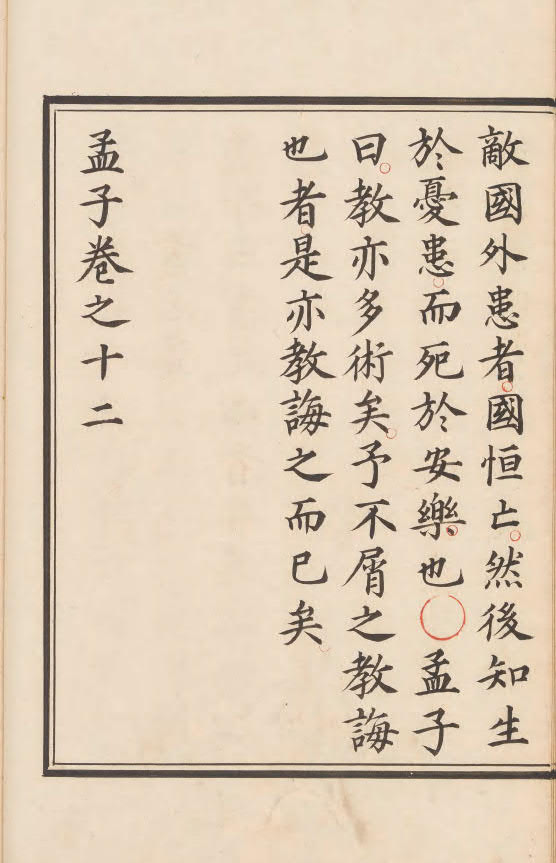 敵國外患者。國恒亡。然後知生
於憂患。而死於安樂也〇孟子
曰。教亦多術矣。予不屑之教誨
也者。是亦教誨之而已矣。
孟子卷之十二